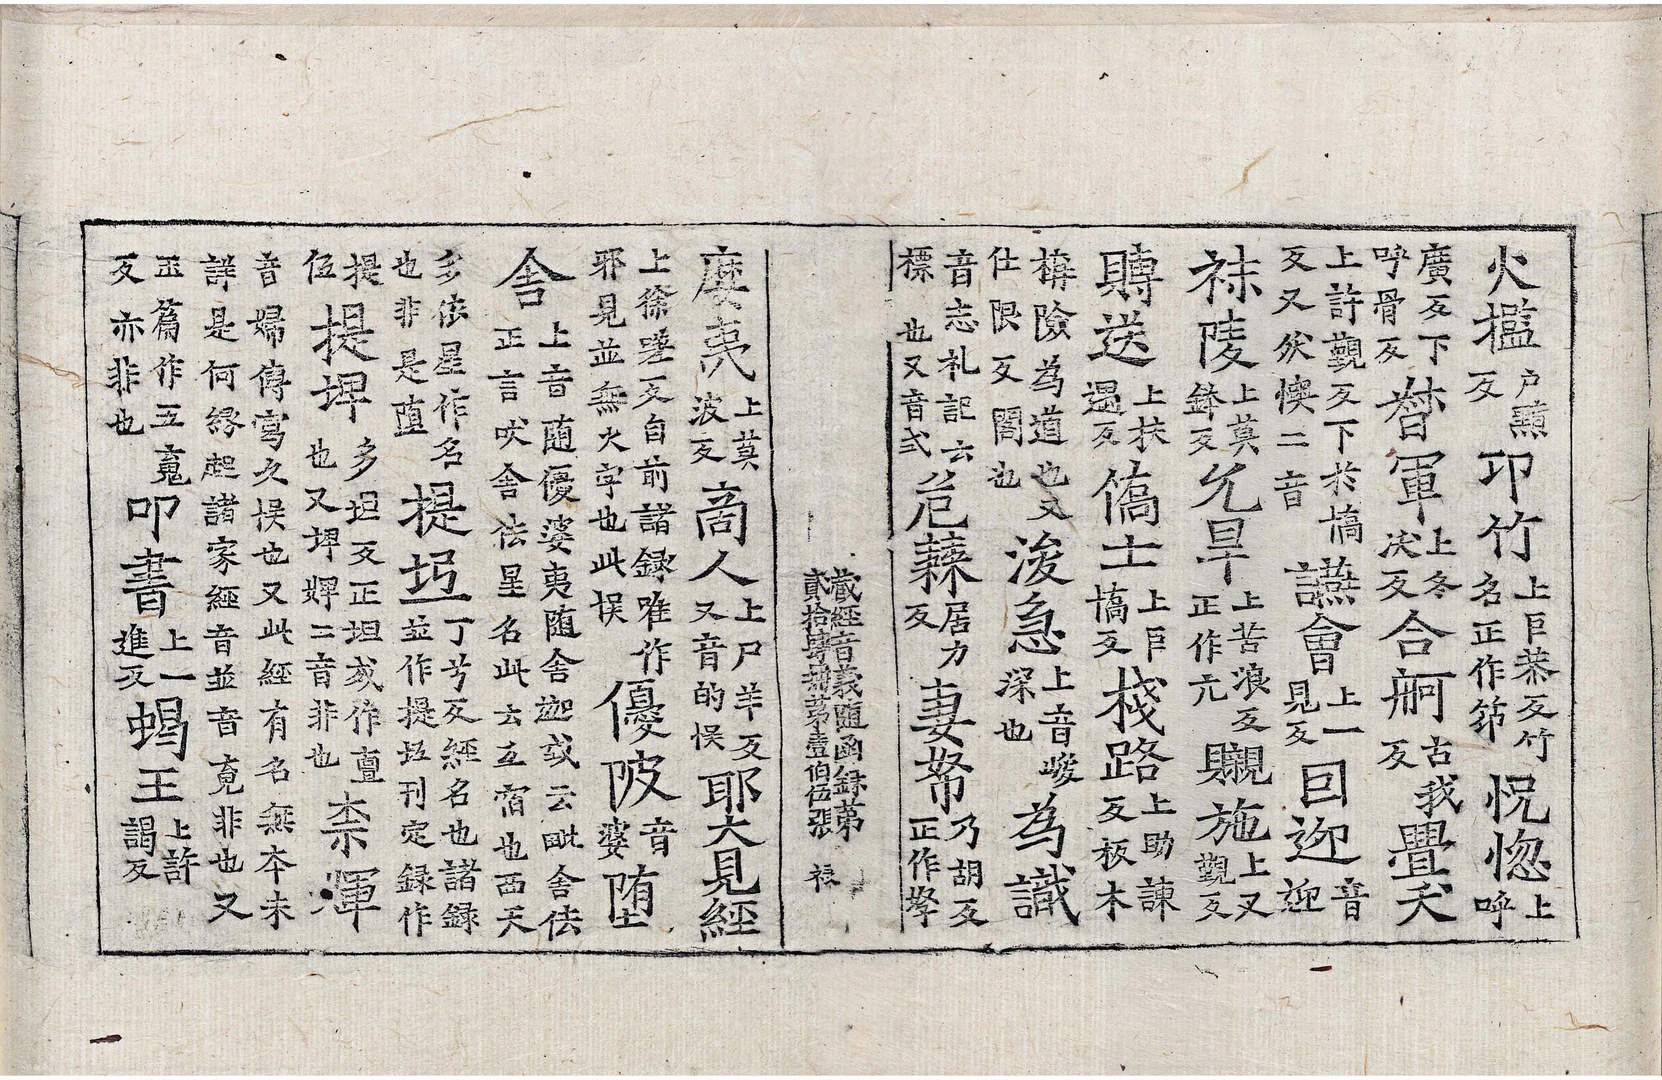 火槛户黤反卭竹上巨恭反竹名正作笻怳惚上呼
廣反下呼骨反𣈆軍上冬决反合舸古我反疉㐲
上許觀反下於犒反又然懊二音讌會上一見反囙迎音迎
祙陵上莫鉢反㕙旱上苦浪反正作亢䞋施上又觀反
賻送上扶遇反僑士上巨憍反棧路上助諫反板木
搆險為道也又仕限反閣也浚急上音峻深也為識
音志札記云摽也又音弐危蘓居力反妻帑乃胡反正作孥
藏經音義随函録弟貳拾肆冊苐壹伯伍張 祿
麽夷上莫波反啇人上尸羊反又音的悮耶大見經
上徐嗟反自前諸録唯作邪見並無火字也此悮優陂音婆堕
舍上音随優婆夷随舍迦或云毗舍佉正言吠舍佉星名此云五宿也西天
多依星作名也非是堕提坥丁兮反經名也諸録並作提坁刊定録作
提伍提埤多坦反正坦或作亶也又埤䍦二音非也柰渾
音婦傳寫久悮也又此經有名無本未詳是何緣起諸家經音並音竟非也又
玉篇作五䰟反亦非也叩書上一進反蝎王上許謁反